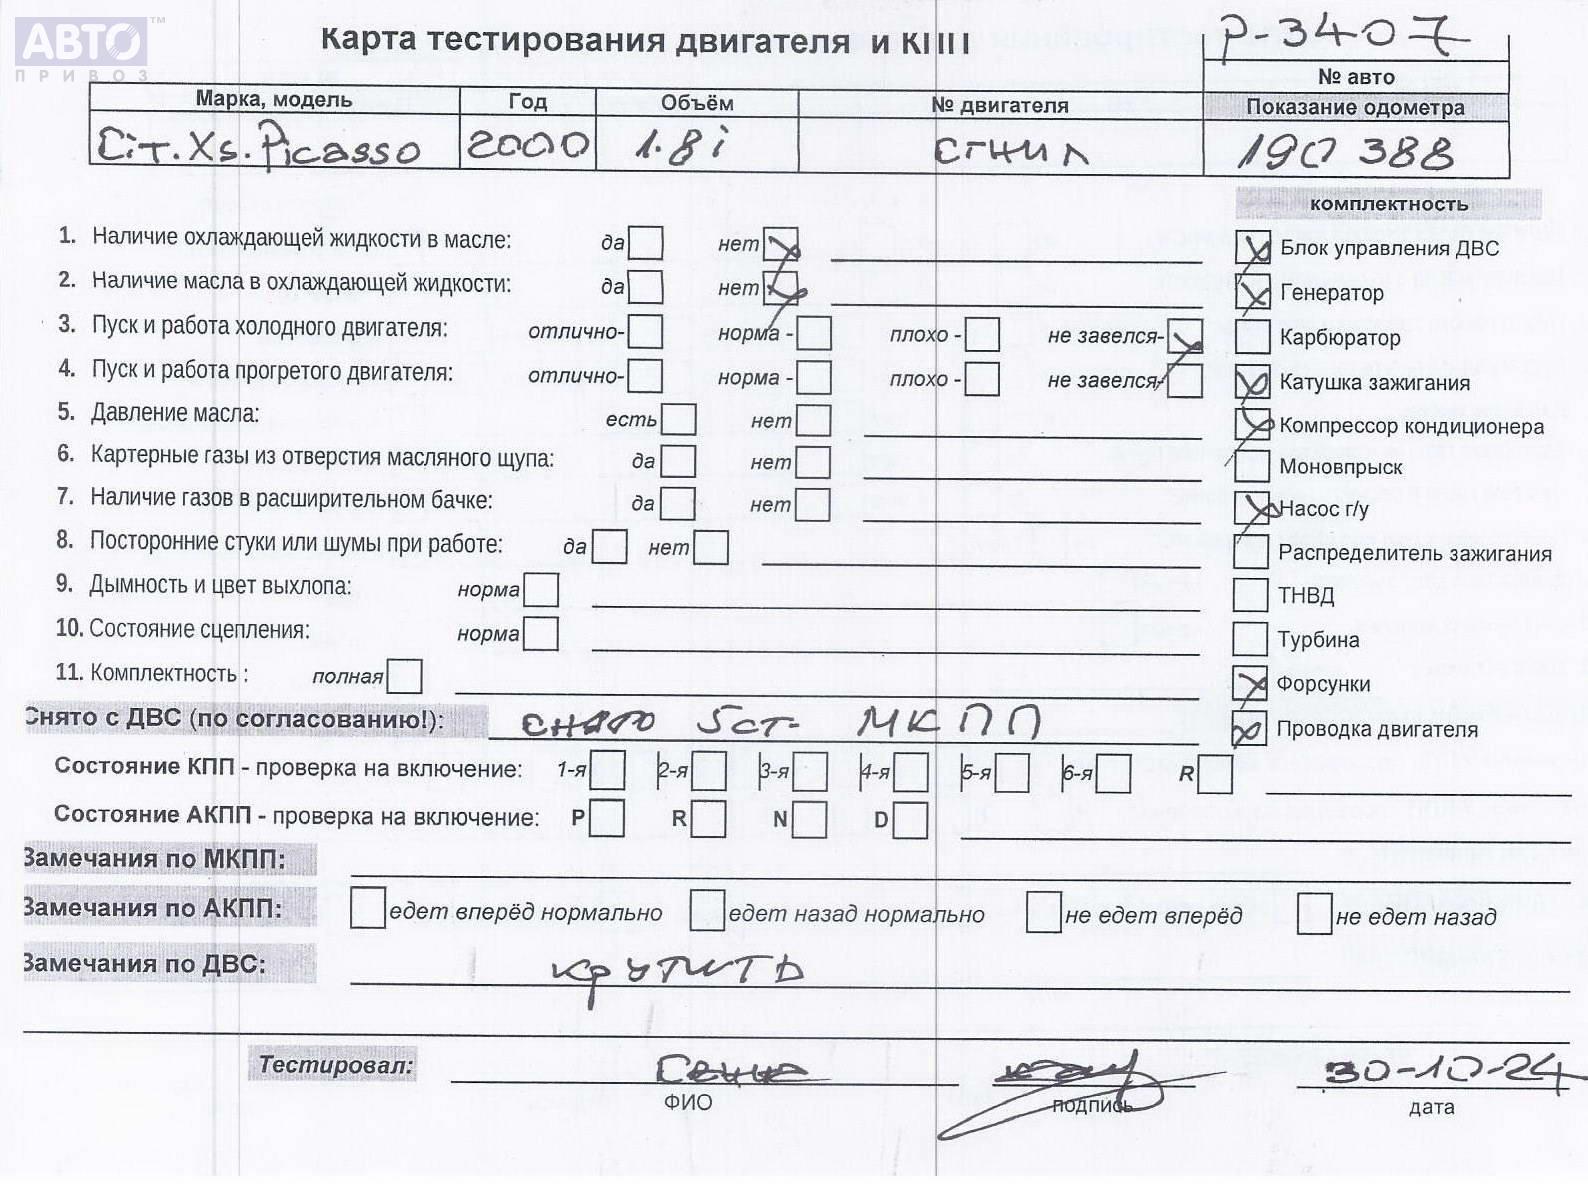 АВТО™
ПРИВОЗ
Карта тестирования двигателя и КПП
P-3407
№ авто
Марка, модель Год Объём № двигателя Показание одометра
Ciт. Xs. Picasso 2000 1.8i сгнил 190 388
комплектность
1. Наличие охлаждающей жидкости в масле: да нет
Блок управления ДВС
2. Наличие масла в охлаждающей жидкости: да нет
Генератор
3. Пуск и работа холодного двигателя: отлично- норма - плохо - не завелся-
Карбюратор
4. Пуск и работа прогретого двигателя: отлично- норма - плохо - не завелся-
Катушка зажигания
5. Давление масла: есть нет
Компрессор кондиционера
6. Картерные газы из отверстия масляного щупа: да нет
Моновпрыск
7. Наличие газов в расширительном бачке: да нет
Насос г/у
8. Посторонние стуки или шумы при работе: да нет
Распределитель зажигания
9. Дымность и цвет выхлопа: норма
ТНВД
10. Состояние сцепления: норма
Турбина
11. Комплектность : полная
Форсунки
Снято с ДВС (по согласованию!): снято 5ст- МКПП
Проводка двигателя
Состояние КПП - проверка на включение: 1-я 2-я 3-я 4-я 5-я 6-я R
Состояние АКПП - проверка на включение: P R N D
Замечания по МКПП:
Замечания по АКПП: едет вперёд нормально едет назад нормально не едет вперёд не едет назад
Замечания по ДВС: крутить
Тестировал: 30-10-24
ФИО подпись дата